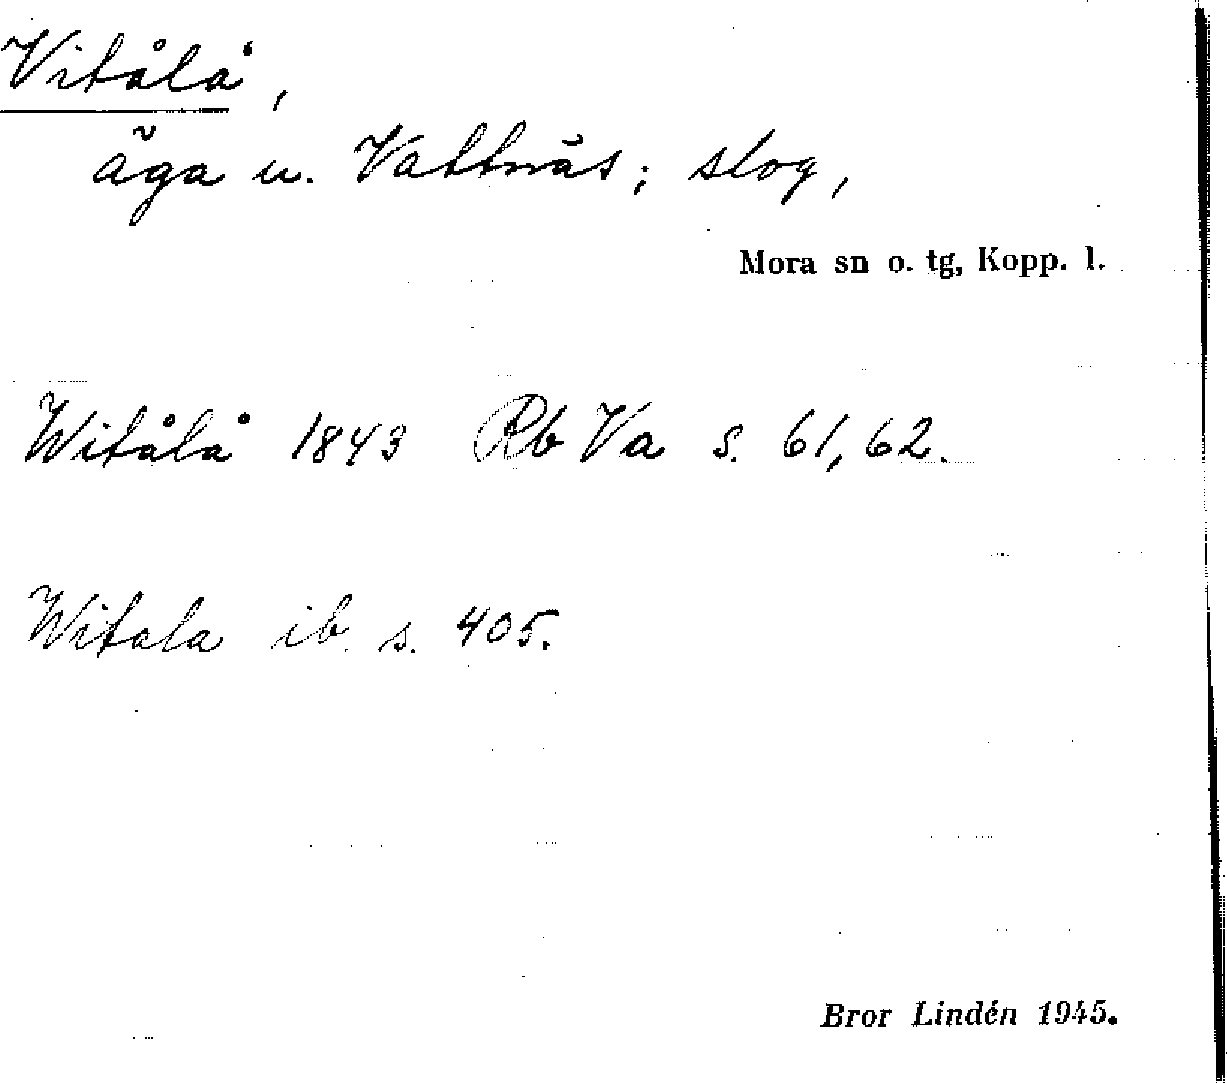 Vitålå,
äga u. Vattnäs; slog,
Mora sn o. tg, Kopp. l.
Witålå 1843 Rb Va s. 61, 62.
Witala ib. s. 405.
Bror Lindén 1945.